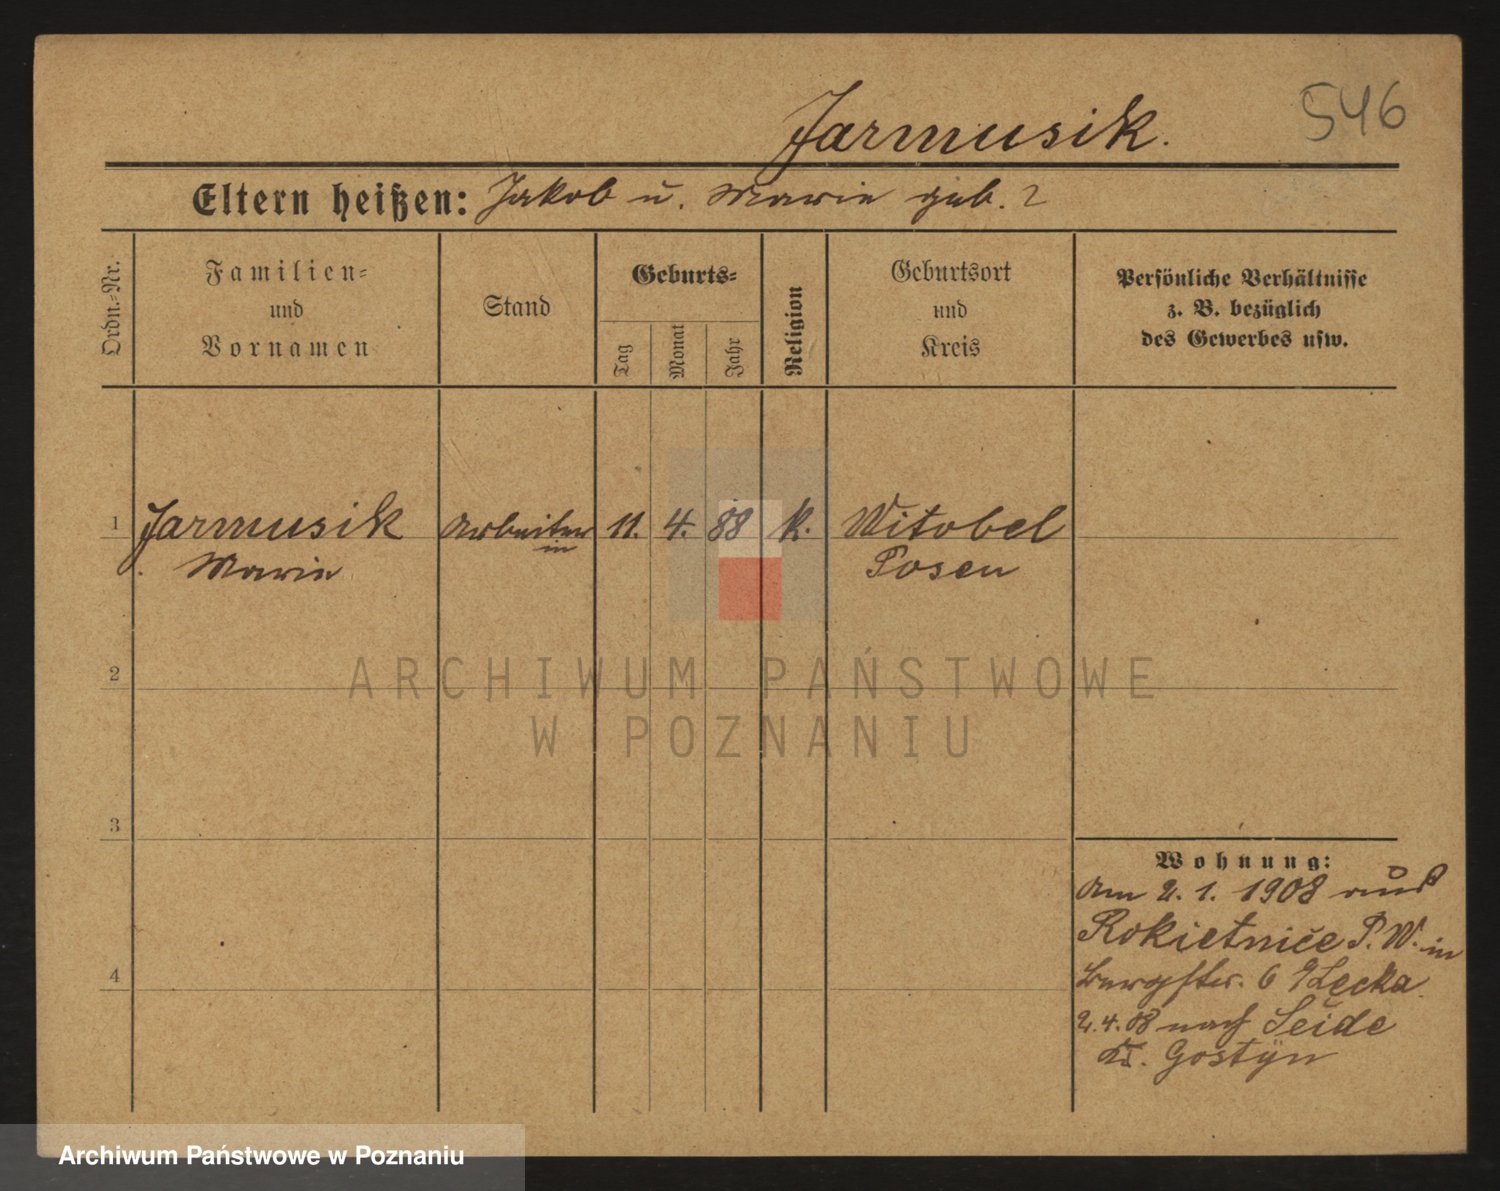 Jarmusik.
546
Eltern heißen: Jakob u. Marie geb. ?
Ordn.-Nr.
Familien-
und
Vornamen
Stand
Geburts-
Tag
Monat
Jahr
Religion
Geburtsort
und
Kreis
Persönliche Verhältnisse
z. B. bezüglich
des Gewerbes usw.
1 Jarmusik Arbeiter 11. 4. 88 k. Witobel
in
Marie Posen
2
ARCHIWUM PAŃSTWOWE
W POZNANIU
3
Wohnung:
Am 2. 1. 1908 aus
Rokietnice P. W. in
Bergstr. 6 b/Łęcka
4
2.4.08 nach Seide
Kr. Gostÿn
Archiwum Państwowe w Poznaniu